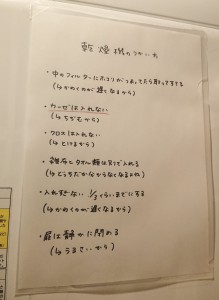 乾燥機のつかい方
・中のフィルターにホコリがつまってたら取ってすてる
(↳かわくのが遅くなるから)
・ガーゼは入れない
(↳ちぢむから)
・クロスは入れない
(↳とけるから)
・雑布とタオル類は別で入れる
(↳どっちだか分からなくなるから)
・入れすぎない 1/3くらいまでにする
(↳かわくのが遅くなるから)
・扉は静かに閉める
(↳うるさいから)